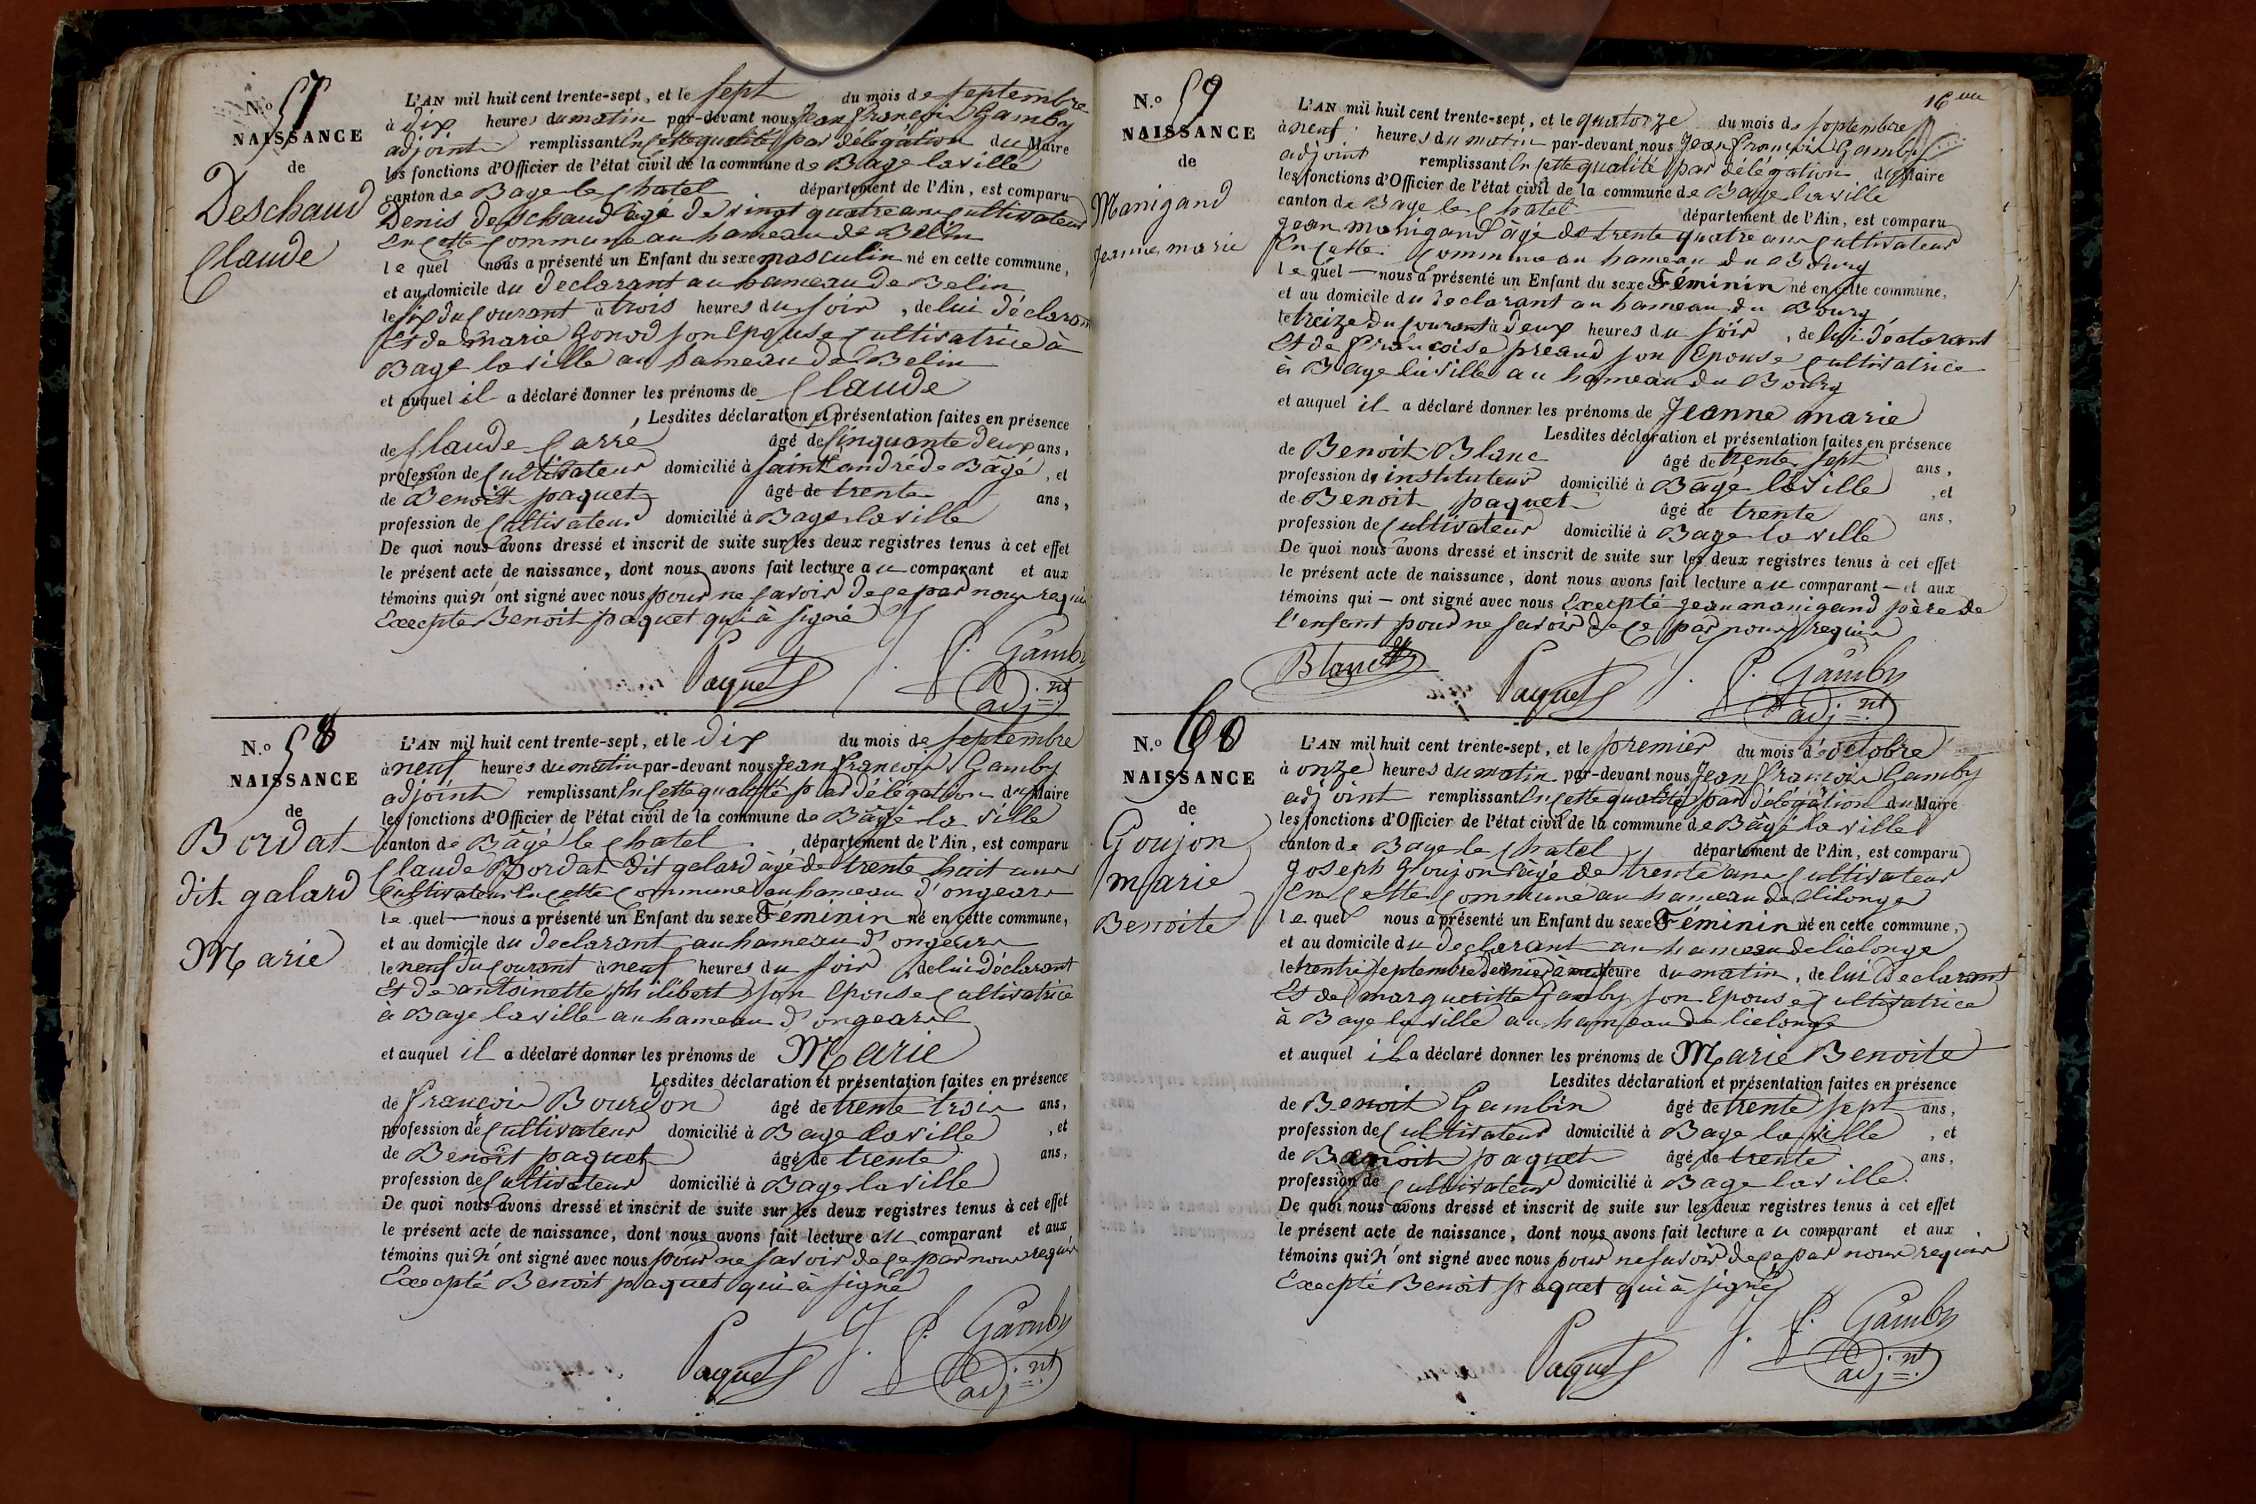 N.o 57
NAISSANCE
de
Deschaud
Claude
L'AN mil huit cent trente-sept, et le sept du mois de septembre
à dix heures du matin par-devant nous Jean françois Gamby
adjoint remplissant En cette qualité par délégation du Maire
les fonctions d'Officier de l'état civil de la commune de Bage la ville
canton de Bage le Chatel département de l'Ain, est comparu
Denis deschaud âgé de vingt quatre ans Cultivateur
En cette Commune au hameau de Belin
le quel nous a présenté un Enfant du sexe masculin né en cette commune,
et au domicile du declarant au hameau de Belin
le six du Courant à trois heures du soir, de lui déclarant
Et de marie Gonod son Epouse Cultivatrice à
Bage la ville au hameau de Belin
et auquel il a déclaré donner les prénoms de Claude
Lesdites déclaration et présentation faites en présence
de Claude Carré âgé de Cinquante deux ans,
profession de Cultivateur domicilié à saint andré de Bâgé, et
de Benoit paquet âgé de trente ans,
profession de Cultivateur domicilié à Bage la ville
De quoi nous avons dressé et inscrit de suite sur les deux registres tenus à cet effet
le présent acte de naissance, dont nous avons fait lecture au comparant et aux
témoins qui n'ont signé avec nous pour ne savoir de ce par nous requis
Excepté Benoit paquet qui à signé
Paquet J. f. Gamby
adj.nt
N.o 58
NAISSANCE
de
Bordat
dit galard
Marie
L'AN mil huit cent trente-sept, et le dix du mois de septembre
à neuf heures du matin par-devant nous Jean françois Gamby
adjoint remplissant En cette qualité par délégation du Maire
les fonctions d'Officier de l'état civil de la commune de Bâgé la ville
canton de Bâgé le Chatel département de l'Ain, est comparu
Claude Bordat dit galard âgé de trente huit ans
Cultivateur En cette Commune au hameau d'ongears
le quel nous a présenté un Enfant du sexe Féminin né en cette commune,
et au domicile du declarant au hameau d'ongears
le neuf du Courant à neuf heures du soir, de lui déclarant
Et de antoinette philibert son Epouse Cultivatrice
à Bage la ville au hameau d'ongears
et auquel il a déclaré donner les prénoms de Marie
Lesdites déclaration et présentation faites en présence
de françois Bourdon âgé de trente trois ans,
profession de Cultivateur domicilié à Bage la ville, et
de Benoit paquet âgé de trente ans,
profession de Cultivateur domicilié à Bage la ville
De quoi nous avons dressé et inscrit de suite sur les deux registres tenus à cet effet
le présent acte de naissance, dont nous avons fait lecture au comparant et aux
témoins qui n'ont signé avec nous pour ne savoir de ce par nous requis
Excepté Benoit paquet qui à signé
Paquet J. f. Gamby
adj.nt
16
N.o 59
NAISSANCE
de
Manigand
Jeanne marie
L'AN mil huit cent trente-sept, et le quatorze du mois de septembre
à neuf heures du matin par-devant nous Jean françois Gamby
adjoint remplissant En cette qualité par délégation du Maire
les fonctions d'Officier de l'état civil de la commune de Bage la ville
canton de Bage le Chatel département de l'Ain, est comparu
Jean Manigand âgé de trente quatre ans Cultivateur
En cette Commune au hameau du Bourg
le quel nous a présenté un Enfant du sexe Féminin né en cette commune,
et au domicile du declarant au hameau du Bourg
le treize du Courant à deux heures du soir, de lui déclarant
Et de françoise preaud son Epouse Cultivatrice
à Bage la ville au hameau du Bourg
et auquel il a déclaré donner les prénoms de Jeanne marie
Lesdites déclaration et présentation faites en présence
de Benoit Blanc âgé de trente sept ans,
profession de instituteur domicilié à Bage la ville, et
de Benoit paquet âgé de trente ans,
profession de Cultivateur domicilié à Bage la ville
De quoi nous avons dressé et inscrit de suite sur les deux registres tenus à cet effet
le présent acte de naissance, dont nous avons fait lecture au comparant et aux
témoins qui ont signé avec nous Excepté Jean manigand père de
l'enfant pour ne savoir de ce par nous requis
Blanc Paquet J. f. Gamby
adj.nt
N.o 60
NAISSANCE
de
Goujon
Marie
Benoite
L'AN mil huit cent trente-sept, et le premier du mois d'octobre
à onze heures du matin par-devant nous Jean françois Gamby
adjoint remplissant En cette qualité par délégation du Maire
les fonctions d'Officier de l'état civil de la commune de Bâgé la ville
canton de Bage le Chatel département de l'Ain, est comparu
Joseph Goujon âgé de trente ans Cultivateur
En cette Commune au hameau de lilonge
le quel nous a présenté un Enfant du sexe Féminin né en cette commune,
et au domicile du declarant au hameau de lielonge
le trente septembre dernier à heure du matin, de lui declarant
Et de margueritte Gamby son Epouse Cultivatrice
à Bage la ville au hameau de lielonge
et auquel il a déclaré donner les prénoms de Marie Benoite
Lesdites déclaration et présentation faites en présence
de Benoit Gambin âgé de trente sept ans,
profession de Cultivateur domicilié à Bage la ville, et
de Benoit paquet âgé de trente ans,
profession de Cultivateur domicilié à Bage la ville.
De quoi nous avons dressé et inscrit de suite sur les deux registres tenus à cet effet
le présent acte de naissance, dont nous avons fait lecture au comparant et aux
témoins qui n'ont signé avec nous pour ne savoir de ce par nous requis
Excepté Benoit paquet qui à signé
Paquet J. f. Gamby
adj.nt